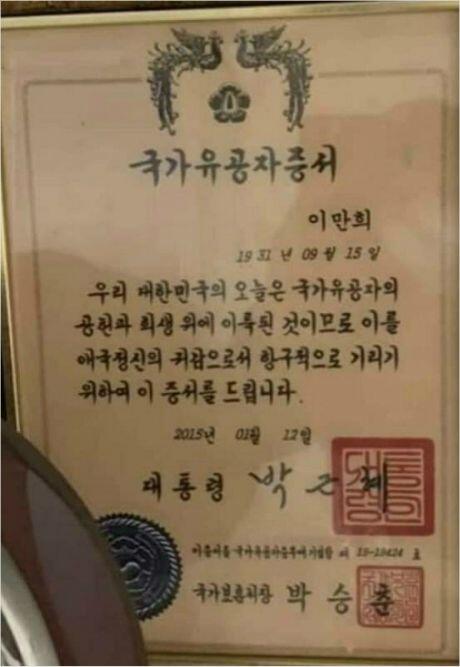 국가유공자증서
이만희
1931 년 09 월 15 일
우리 대한민국의 오늘은 국가유공자의
공헌과 희생 위에 이룩된 것이므로 이를
애국정신의 귀감으로서 항구적으로 기리기
위하여 이 증서를 드립니다.
2015년 01월 12일
대통령 박근혜
대통령
이 증서를 국가유공자증부에 기입함 제 호
국가보훈처장 박승춘